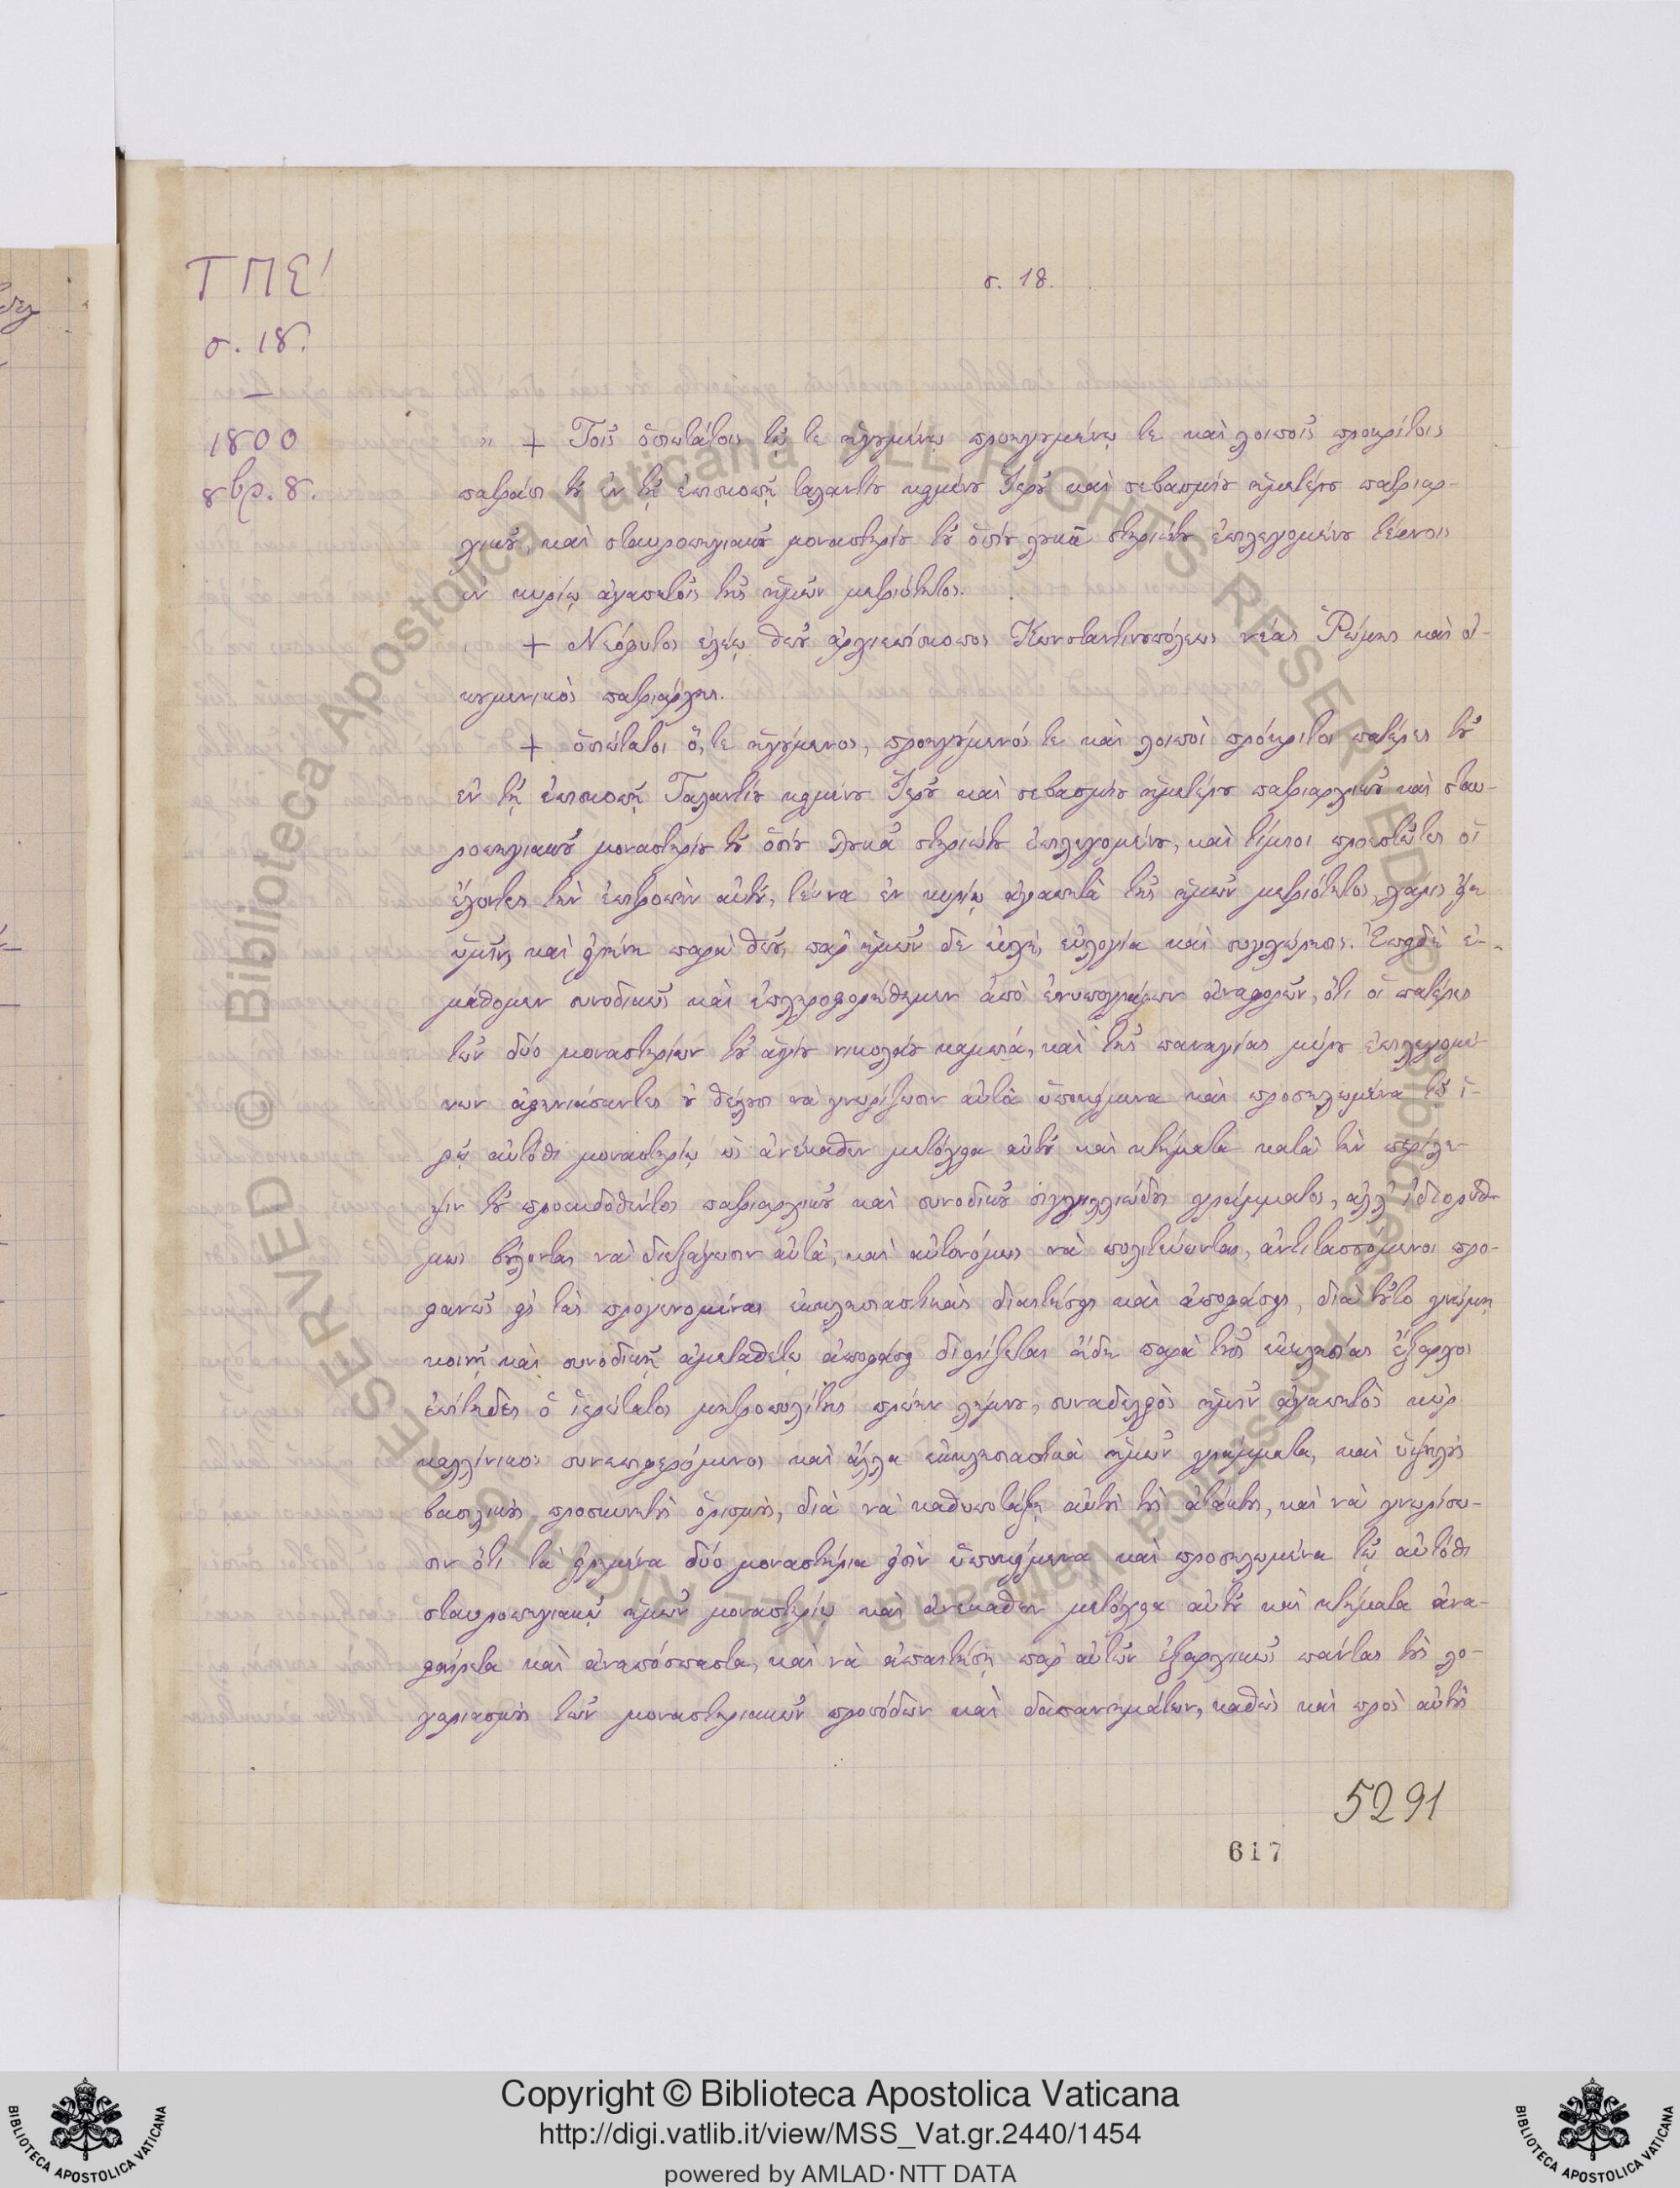 ΤΠΕ'
σ. 18.
σ. 18.
1800
8βρ. 8.
" + Τοῖς ὁσιωτάτοις τῷ τε ἡγουμένῳ προηγουμένῳ τε καὶ λοιποῖς προκρίτοις
πατράσι τοῦ ἐν τῇ ἐπισκοπῇ ταλαντίου κειμένου Ἱεροῦ καὶ σεβασμίου ἡμετέρου πατριαρ-
χικοῦ, καὶ σταυροπηγιακοῦ μοναστηρίου τοῦ ὁσίου λουκᾶ στηριώτου ἐπιλεγομένου τέκνοις
ἐν κυρίῳ ἀγαπητοῖς τῆς ἡμῶν μετριότητος.
+ Νεόφυτος ἐλέῳ θεοῦ ἀρχιεπίσκοπος Κωνσταντινουπόλεως νέας Ῥώμης καὶ οἰ-
κουμενικὸς πατριάρχης.
+ ὁσιώτατοι ὅ, τε ἡγούμενος, προηγούμενός τε καὶ λοιποὶ πρόκριτοι πατέρες τοῦ
ἐν τῇ ἐπισκοπῇ Ταλαντίου κειμένου Ἱεροῦ καὶ σεβασμίου ἡμετέρου πατριαρχικοῦ καὶ σταυ-
ροπηγιακοῦ μοναστηρίου τοῦ ὁσίου λουκᾶ στηριώτου ἐπιλεγομένου, καὶ τίμιοι προεστῶτες οἱ
ἔχοντες τὴν ἐπιτροπὴν αὐτοῦ, τέκνα ἐν κυρίῳ ἀγαπητὰ τῆς ἡμῶν μετριότητος, χάρις εἴη
ὑμῖν, καὶ εἰρήνη παρὰ θεοῦ, παρ' ἡμῶν δὲ εὐχὴ, εὐλογία καὶ συγχώρησις. Ἐπειδὴ ἐ-
μάθομεν συνοδικῶς καὶ ἐπληροφορήθημεν ἀπὸ ἐνυπογράφων ἀναφορῶν, ὅτι οἱ πατέρες
τῶν δύο μοναστηρίων τοῦ ἁγίου νικολάου καμπιά, καὶ τῆς παναγίας μύρου ἐπιλεγομέ-
νων ἀφηνιάσαντες οὐ θέλουσι νὰ γνωρίζωσιν αὐτὰ ὑποκείμενα καὶ προσηλωμένα τῷ ἱ-
ερῷ αὐτόθι μοναστηρίῳ ὡς ἀνέκαθεν μετόχια αὐτοῦ καὶ κτήματα κατὰ τὴν περίλη-
ψιν τοῦ προεκδοθέντος πατριαρχικοῦ καὶ συνοδικοῦ σιγγιλλιώδους γράμματος, ἀλλ' ἰδιορύθ-
μως βούλονται νὰ διεξάγωσιν αὐτὰ, καὶ αὐτονόμως νὰ πολιτεύωνται, ἀντιτασσόμενοι προ-
φανῶς εἰς τὰς προγενομένας ἐκκλησιαστικὰς διατυπώσεις καὶ ἀποφάσεις, διὰ τοῦτο γνώμῃ
κοινῇ καὶ συνοδικῇ ἀμεταθέτῳ ἀποφάσει διορίζεται ἤδη παρὰ τῆς ἐκκλησίας ἔξαρχος
ἐπίτηδες ὁ ἱερώτατος μητροπολίτης πρώην λήμνου, συναδελφὸς ἡμῶν ἀγαπητὸς κὺρ
καλλίνικος συνεπιφερόμενος καὶ ἄλλα ἐκκλησιαστικὰ ἡμῶν γράμματα, καὶ ὑψηλοὺς
βασιλικοὺς προσκυνητοὺς ὁρισμοὺς, διὰ νὰ καθυποτάξῃ αὐτοὺς τοὺς ἀτάκτους, καὶ νὰ γνωρίσω-
σιν ὅτι τὰ εἰρημένα δύο μοναστήρια εἰσὶν ὑποκείμενα καὶ προσηλωμένα τῷ αὐτόθι
σταυροπηγιακῷ ἡμῶν μοναστηρίῳ καὶ ἀνέκαθεν μετόχια αὐτοῦ καὶ κτήματα ἀνα-
φαίρετα καὶ ἀναπόσπαστα, καὶ νὰ ἀπαιτήσῃ παρ' αὐτῶν ἐξαρχικῶς πάντας τοὺς λο-
γαριασμοὺς τῶν μοναστηριακῶν προσόδων καὶ δαπανημάτων, καθὼς καὶ πρὸς αὐτοὺς
5291
617
Copyright © Biblioteca Apostolica Vaticana
http://digi.vatlib.it/view/MSS_Vat.gr.2440/1454
powered by AMLAD·NTT DATA